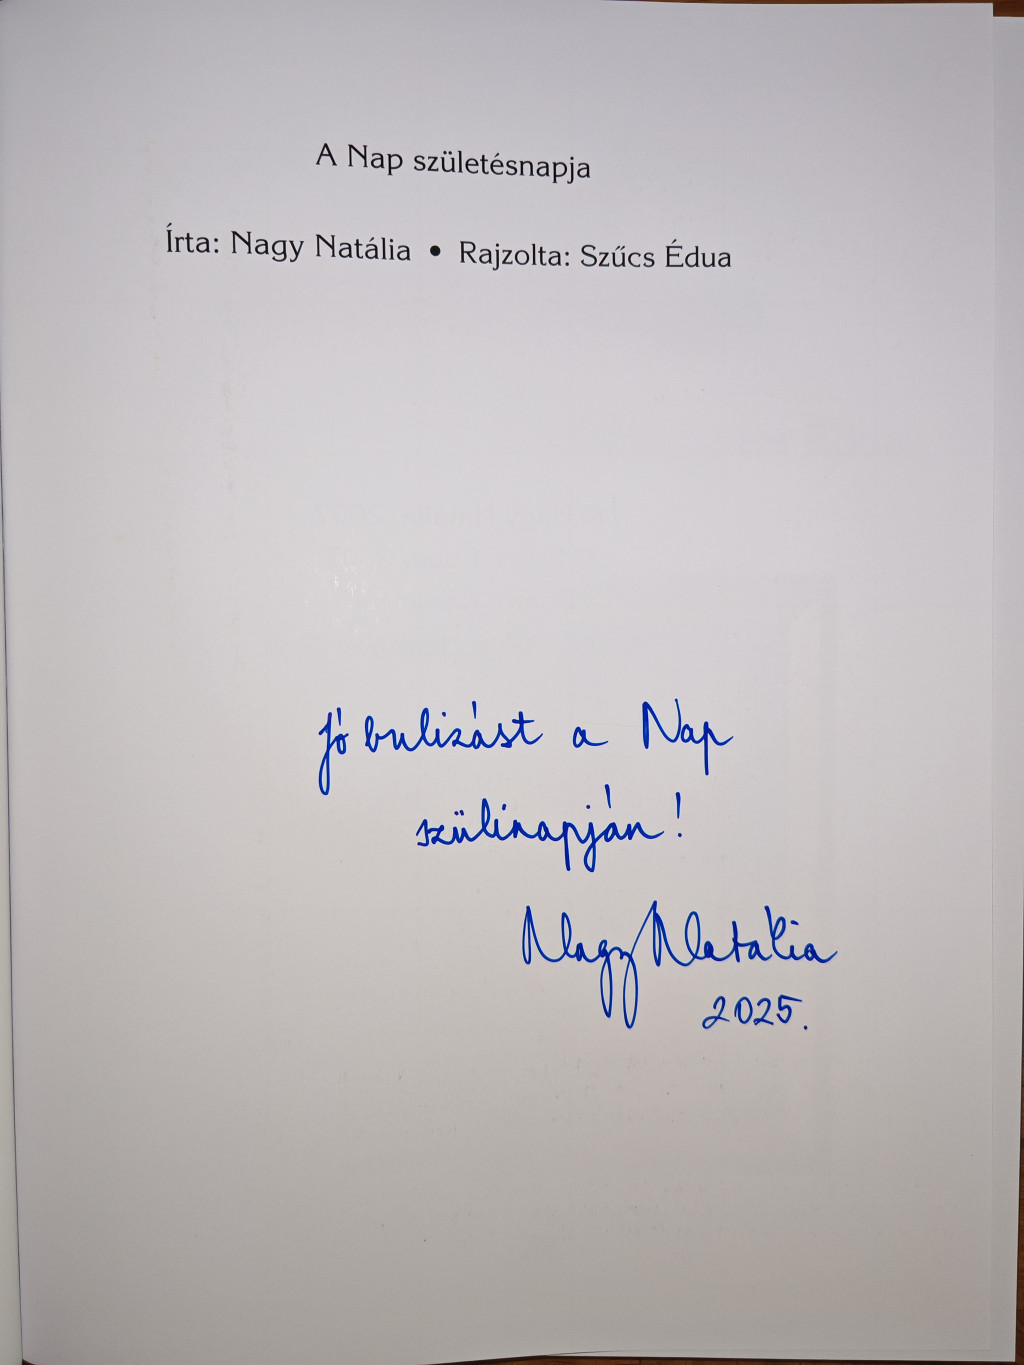 A Nap születésnapja
Írta: Nagy Natália • Rajzolta: Szűcs Édua
Jó bulizást a Nap
szülinapján!
Nagy Natália
2025.